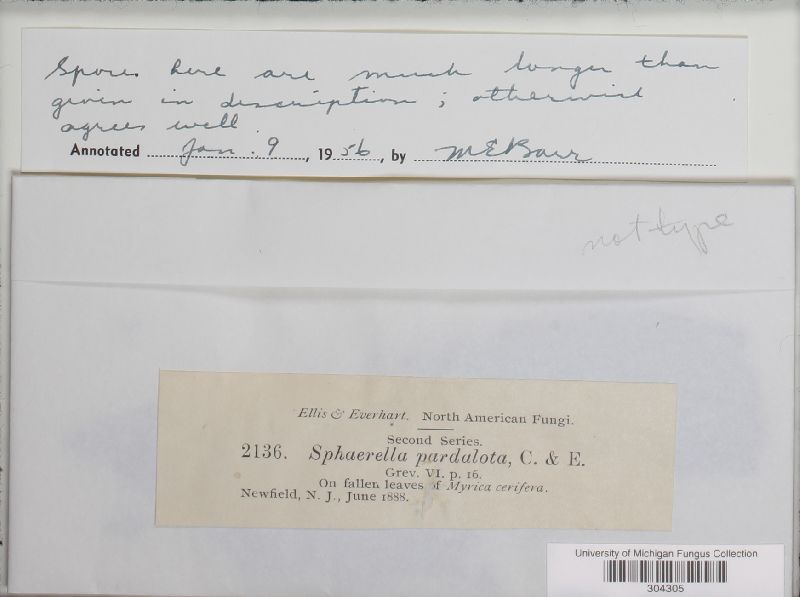 Spores here are much longer than
given in description; otherwise
agrees well.
Annotated Jan. 9, 1956, by M E Barr
not type
Ellis & Everhart. North American Fungi.
Second Series.
2136. Sphaerella pardalota, C. & E.
Grev. VI. p. 16.
On fallen leaves of Myrica cerifera.
Newfield, N. J., June 1888.
University of Michigan Fungus Collection
304305